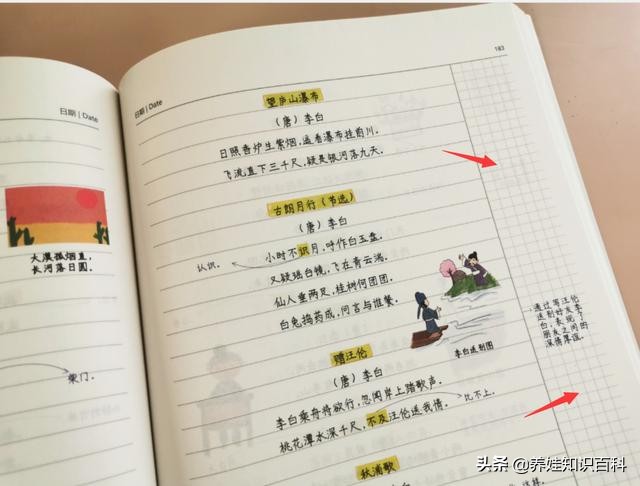 日期 | Date
大漠孤烟直，
长河落日圆。
柴门。
日期 | Date
183
望庐山瀑布
（唐）李白
日照香炉生紫烟，遥看瀑布挂前川。
飞流直下三千尺，疑是银河落九天。
古朗月行（节选）
（唐）李白
小时不识月，呼作白玉盘。
认识。
又疑瑶台镜，飞在青云端。
仙人垂两足，桂树何团团。
白兔捣药成，问言与谁餐。
李白送别图
赠汪伦
（唐）李白
李白乘舟将欲行，忽闻岸上踏歌声。
桃花潭水深千尺，不及汪伦送我情。
比不上。
通过写汪伦
送别好友李
白，表现了
朋友之间的
深情厚谊。
秋浦歌
这样。
头条 @养娃知识百科